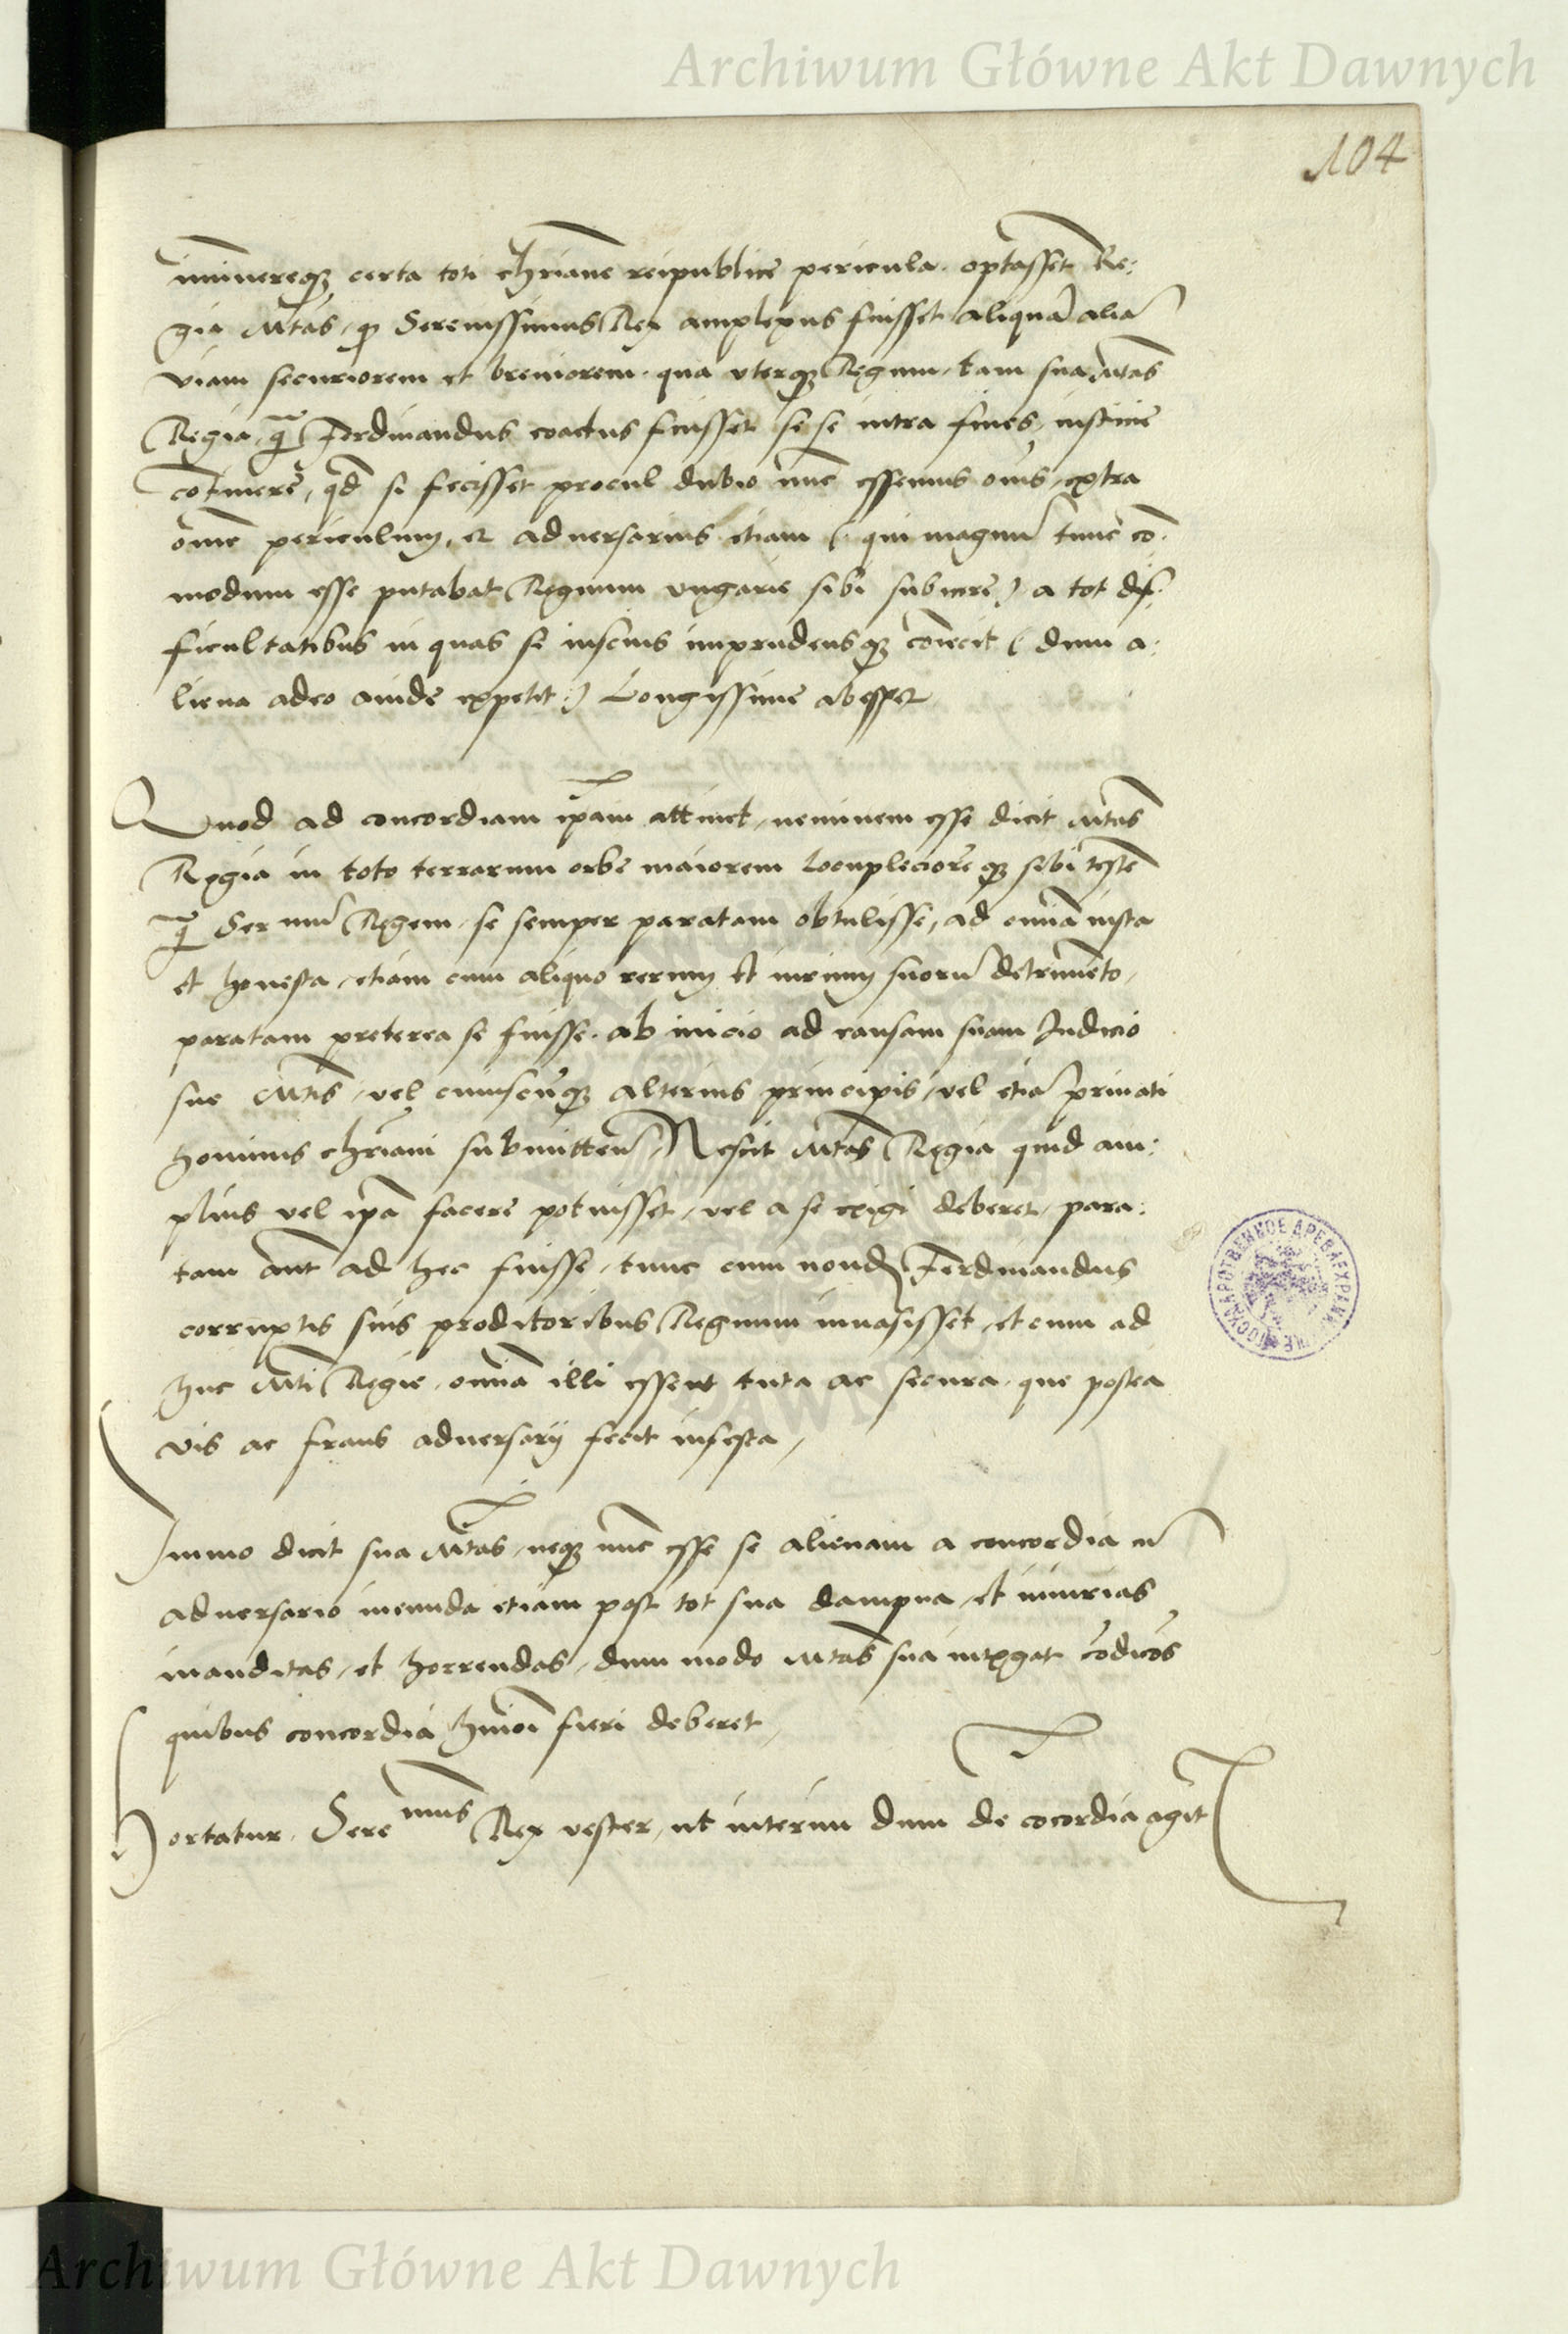 Archiwum Główne Akt Dawnych
104
iminereqꝫ certa toti chriane reipublice pericula. optasset Re:
gia Mtas, ꝙ Serenissimus Rex amplexus fuisset aliquā aliā
viam securiorem et breviorem. qua uterqꝫ Regum, tam sua Mtas
Regia, ꝗ̃ Ferdinandus coactus fuisset se se intra fines, iusticie
cōtinere, qd si fecisset procul dubio nūc essemus oīns, extra
omē periculum, et adversarius etiam (qui magnū tunc cō:
modum esse putabat Regnum Ungarie sibi subicere) a tot dif:
ficultatibus in quas se inscius imprudensqꝫ coniecit (dum a:
liena adeo avide expetit) Longissime abesset
Quod ad concordiam ipam attinet, neminem esse dicit Mtas
Regia in toto terrarum orbe maiorem locuplecioreqꝫ sibi testē
ꝗ̃ Ser mū Regem, se semper paratam obtulisse, ad omīa iusta
et honesta, etiam cum aliquo rerum et iurium suorū detrimēto,
paratam preterea se fuisse. ab inicio ad causam suam Judicio
sue Mtis, vel cuiuscūqꝫ alterius principis, vel etiā privati
hominis chriani submittenā, Nescit Mtas Regia quid am:
plius vel ipā facere potuisset, vel a se exigi deberet, para:
tam aūt ad hec fuisse, tunc cum nondū Ferdinandus
corruptis suis proditoribus Regnum invasisset, et cum ad
huc Mti Regie, omīa illi essent tuta ac secura, que postea
vis ac fraus adversarij fecit infesta,
Immo dicit sua Mtas, neqꝫ nūc esse se alienam a concordia cū
adversario ineunda etiam post tot sua dampna, et iniurias
inauditas, et horrendas, dum modo Mtas sua intelligat cōdicōs
quibus concordia hmōi fieri deberet,
Hortatur. Sere mus Rex vester, ut interim dum de cōcordia agit
Archiwum Główne Akt Dawnych